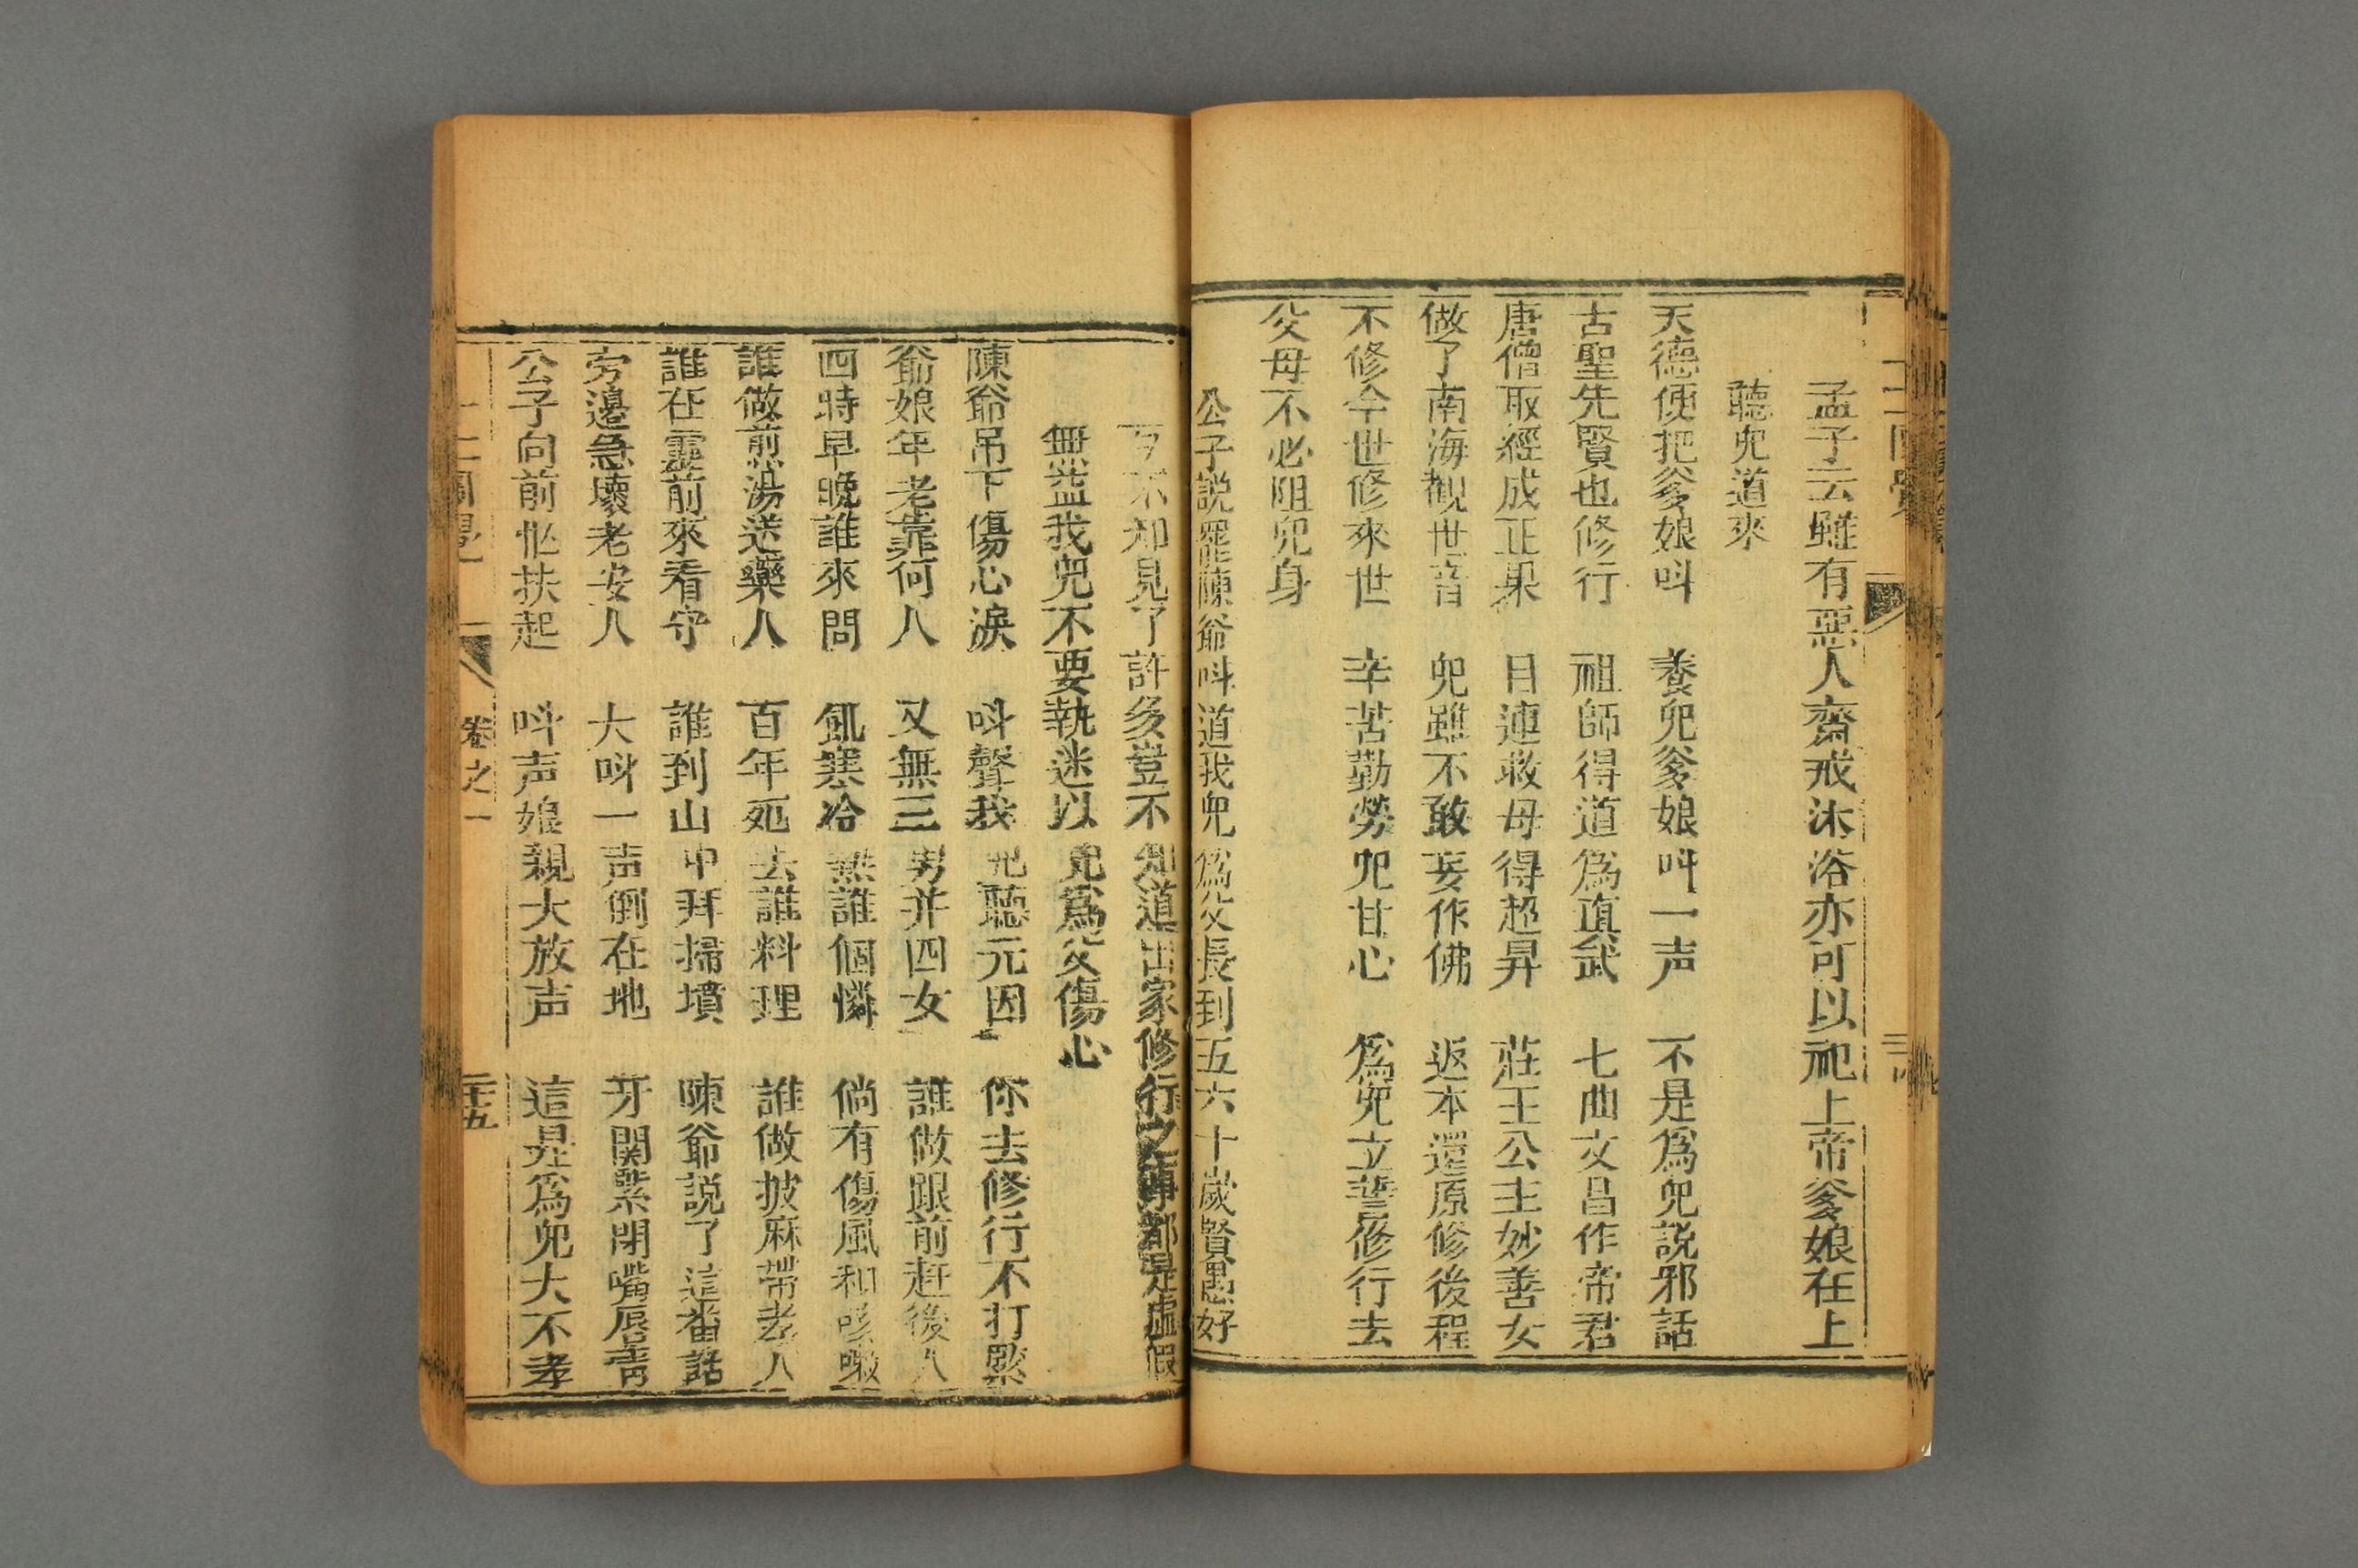 孟子云雖有惡人齋戒沐浴亦可以祀上帝爹娘在上
聽兒道來
天德便把爹娘呌 養兒爹娘呌一声 不是為兒説邪話
古聖先賢也修行 祖師得道為真武 七曲文昌作帝君
唐僧取經成正果 目連救母得超昇 莊王公主妙善女
做了南海観世音 兒雖不敢妄作佛 返本還原修後程
不修今世修來世 辛苦勤勞兒甘心 為兒立誓修行去
父母不必阻兒身
公子説罷陳爺呌道我兒為父長到五六十歲賢愚好
歹不知見了許多豈不知道出家修行之事都是虛假
無益我兒不要執迷以免為父傷心
陳爺吊下傷心淚 呌聲我兒聽元因 你去修行不打緊
爺娘年老靠何人 又無三男并四女 誰做跟前赶後人
四時早晚誰來問 飢寒冷熱誰個憐 倘有傷風和咳嗽
誰做煎湯送藥人 百年死去誰料理 誰做披麻帶孝人
誰在靈前來看守 誰到山中拜掃墳 陳爺説了這番話
旁邊急壞老安人 大呌一声倒在地 牙関緊閉嘴唇青
公子向前忙扶起 呌声娘親大放声 這是為兒大不孝
卷之一 二十五